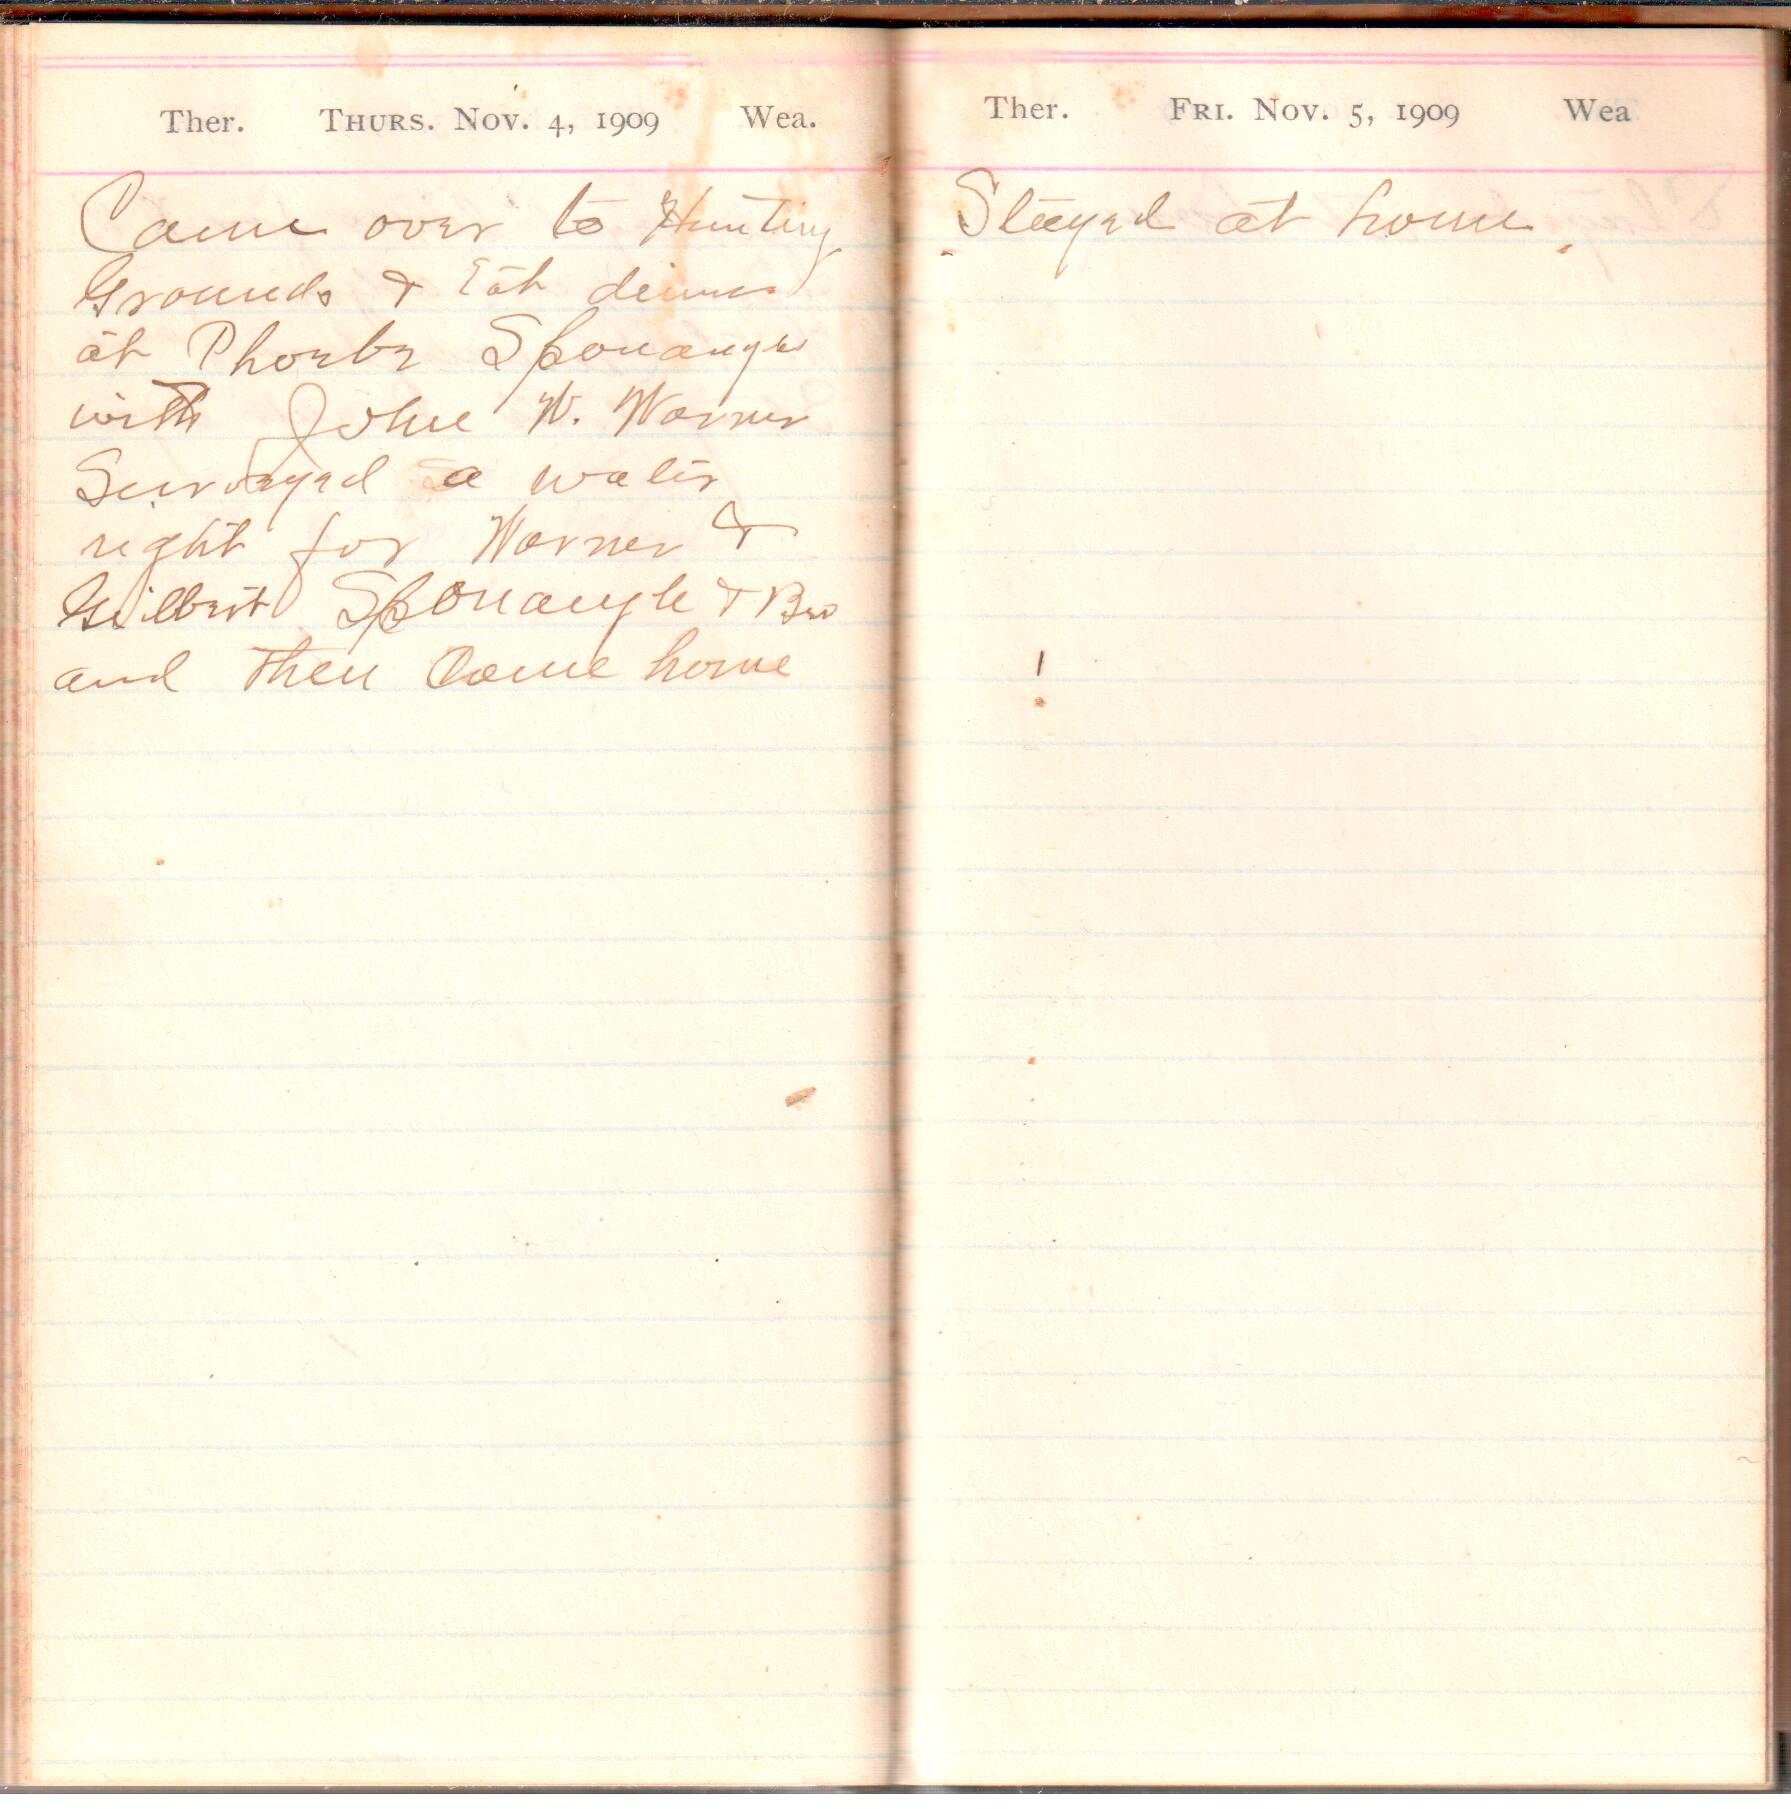 Ther. THURS. NOV. 4, 1909 Wea.
Came over to Hunting
Grounds & Eat dinner
at Phoebe Sponaugles
with John W. Warner
Surveyed a water
right for Warner &
Gilbert Sponaugle & Bro
and then Came home
Ther. FRI. NOV. 5, 1909 Wea
Stayed at home.